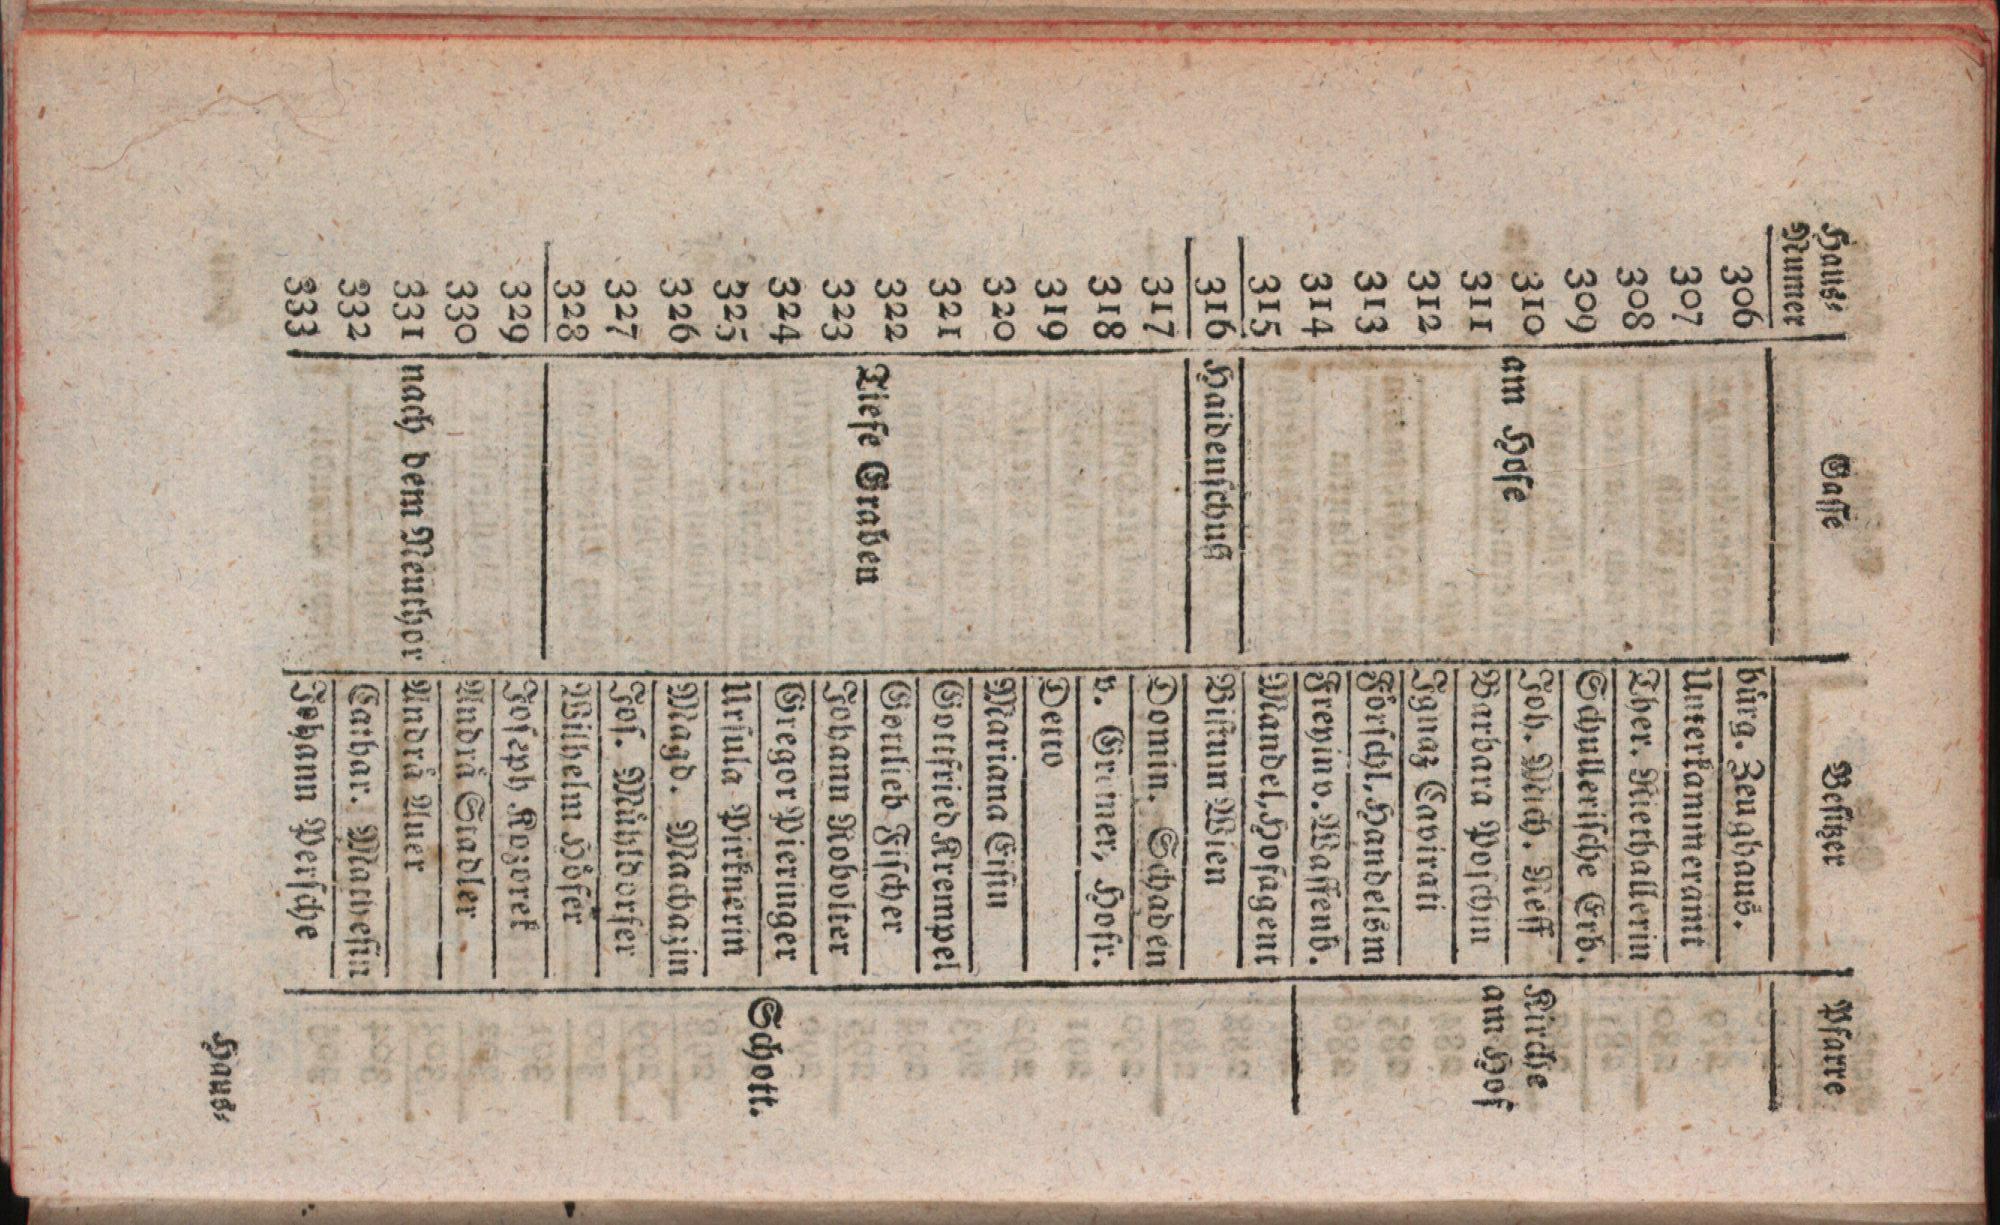 Haus- Numer | Gasse | Besitzer | Pfarre
306 | bürg. Zeughaus.
307 | Unterkammeramt
308 | Ther. Nierhallerin
309 | Schullerische Erb.
310 | am Hofe | Joh. Mich. Neff | Kirche
311 | Barbara Poschin | am Hof
312 | Ignaz Cavirati
313 | Förschl, Handelsm
314 | Freyin v. Waffenb.
315 | Mandel, Hofagent
316 | Haidenschuß | Bistum Wien
317 | Domin. Schaden
318 | v. Greiner, Hofr.
319 | Detto
320 | Mariana Eisin
321 | Gottfried Krempel
322 | Tiefe Graben | Gottlieb Fischer
323 | Johann Kobolter
324 | Gregor Pieringer | Schott.
325 | Ursula Pirknerin
326 | Magd. Machazin
327 | Jos. Mühldorfer
328 | Wilhelm Höfer
329 | Joseph Kozorek
330 | Andrä Stadler
331 | nach dem Neuthor | Andrä Auer
332 | Cathar. Mathesin
333 | Johann Persche
Haus-